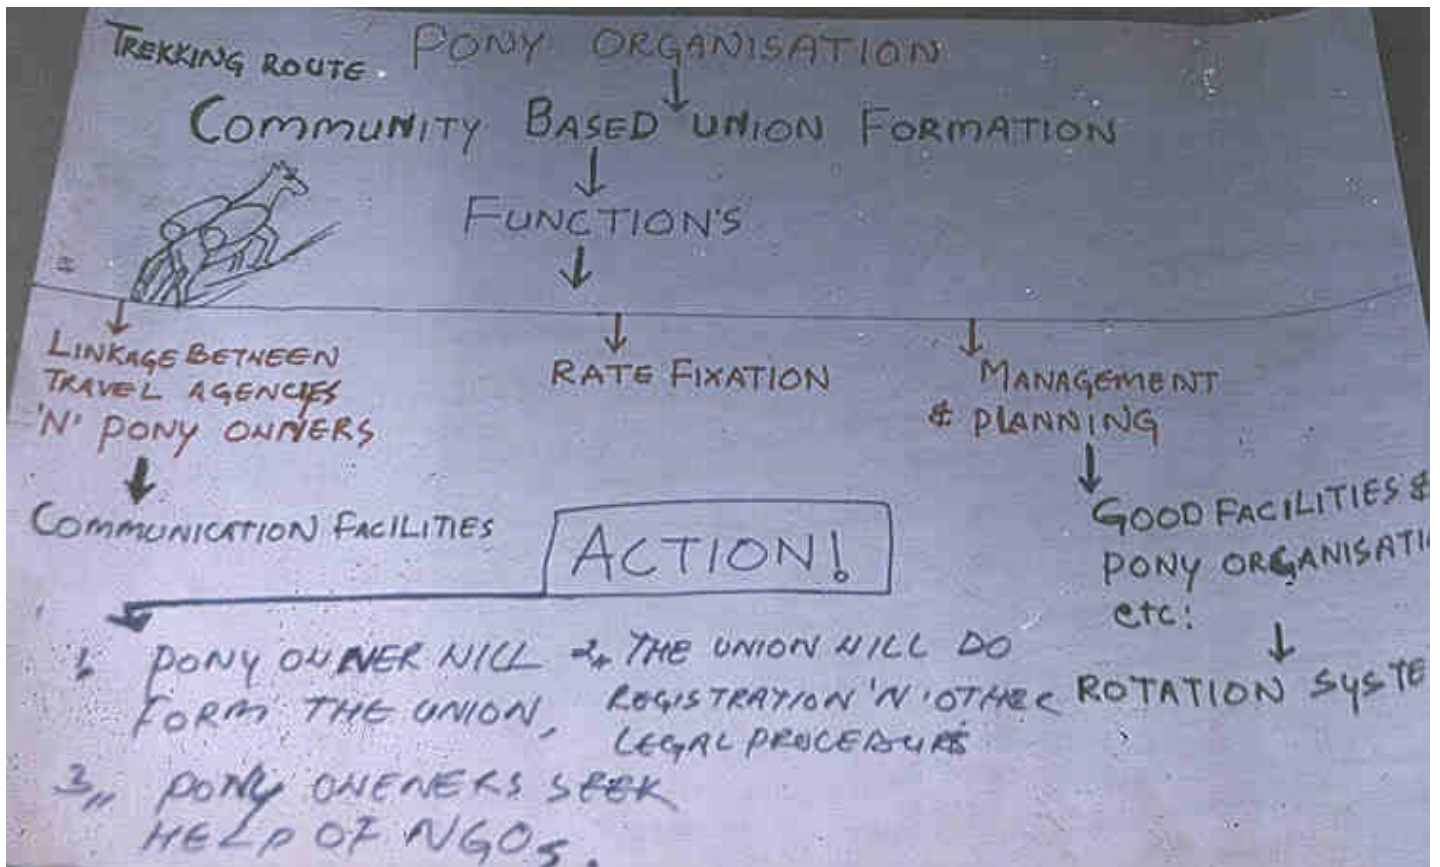 TREKKING ROUTE. PONY ORGANISATION
COMMUNITY BASED UNION FORMATION
FUNCTION'S
LINKAGE BETWEEN
TRAVEL AGENCIES
'N' PONY OWNERS
COMMUNICATION FACILITIES
RATE FIXATION
MANAGEMENT
& PLANNING
GOOD FACILITIES &
PONY ORGANISATI
etc:
ROTATION SYSTE
ACTION!
1, PONY OWNER WILL
FORM THE UNION,
2,, THE UNION WILL DO
REGISTRATION 'N' OTHER
LEGAL PROCEDURS
3,, PONY OWENERS SEEK
HELP OF NGOs.